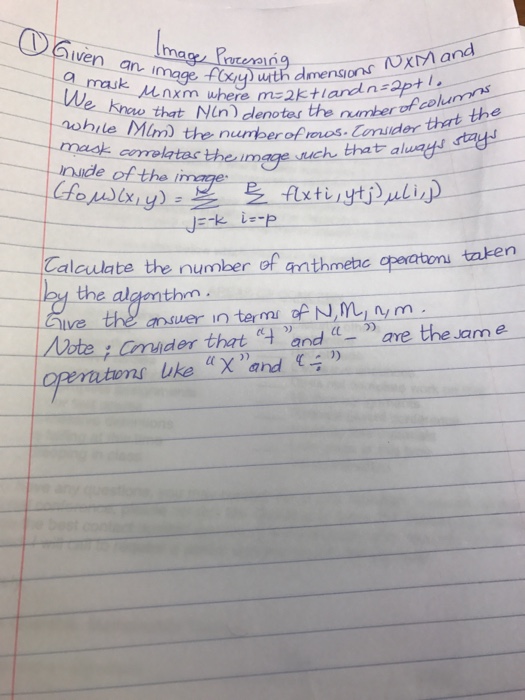 Image Processing
① Given an image f(x,y) with dimensions NxM and
a mask μnxm where m=2k+1 and n=2p+1.
We know that N(n) denotes the number of columns
while M(m) the number of rows. Consider that the
mask correlates the image such that always stays
inside of the image.
(foμ)(x,y) = Σ Σ f(x+i, y+j) μ(i,j)
j=-k i=-p
Calculate the number of arithmetic operations taken
by the algorithm.
Give the answer in terms of N, M, n, m.
Note ; Consider that "+" and "-" are the same
operations like "X" and "÷"